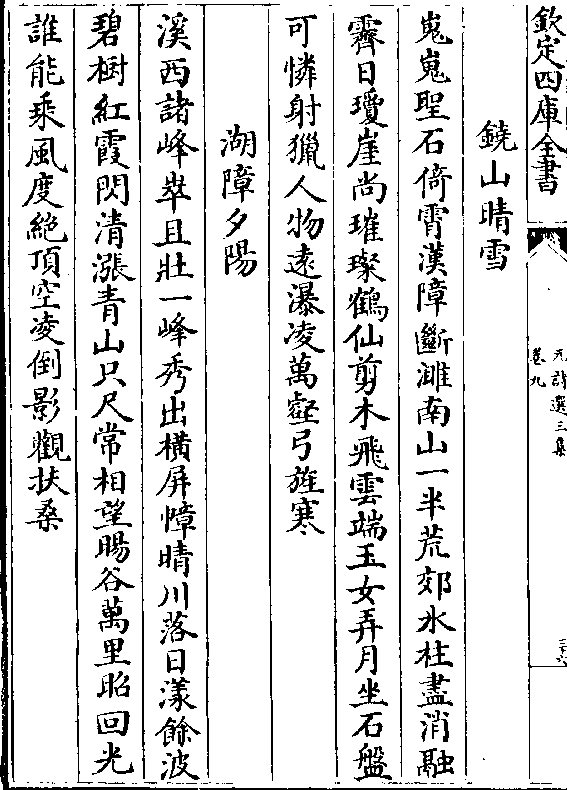 欽定四庫全書
元詩選三集
卷九
三十六
鐃山晴雪
嵬嵬聖石倚霄漢障斷濉南山一半荒郊氷柱盡消融
霽日瓊崖尚璀璨鶴仙剪木飛雲端玉女弄月坐石盤
可憐射獵人物遠瀑凌萬壑弓旌寒
湖障夕陽
溪西諸峰崒且壯一峰秀出橫屏幛晴川落日漾餘波
碧樹紅霞閃清漲青山只尺常相望暘谷萬里昭回光
誰能乘風度絶頂空凌倒影觀扶桑